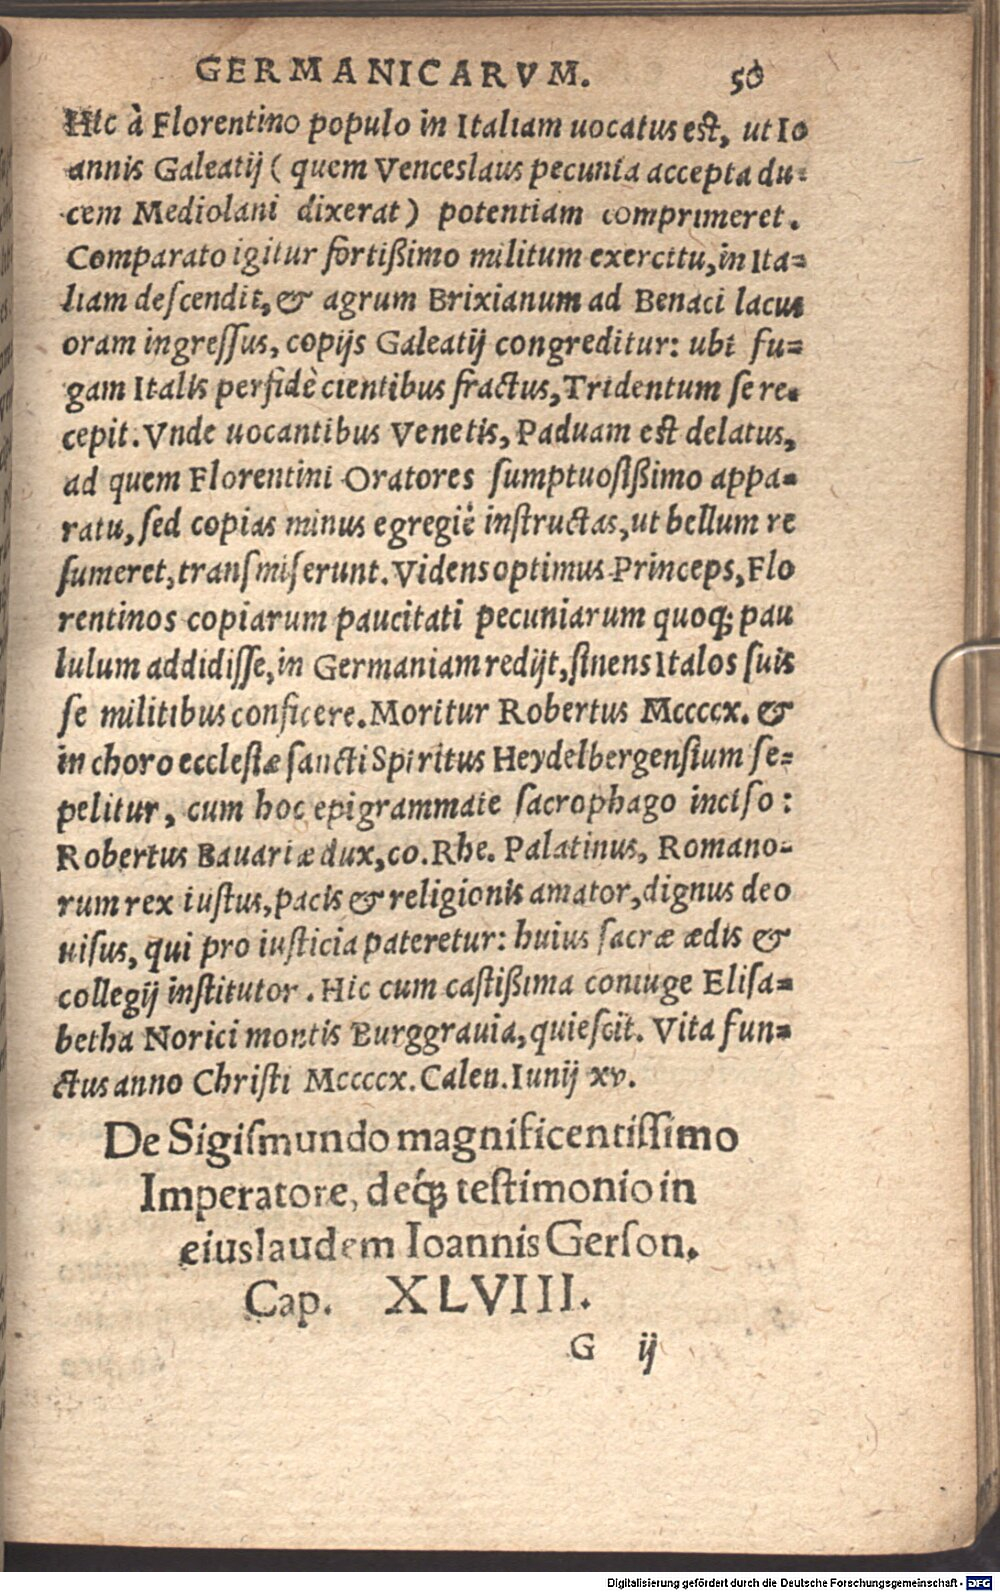 GERMANICARVM. 50
Hic à Florentino populo in Italiam uocatus est, ut Io
annis Galeatij (quem Venceslaus pecunia accepta du-
cem Mediolani dixerat) potentiam comprimeret.
Comparato igitur fortißimo militum exercitu, in Ita-
liam descendit, & agrum Brixianum ad Benaci lacus
oram ingressus, copijs Galeatij congreditur: ubi fu-
gam Italis perfidè cientibus fractus, Tridentum se re-
cepit. Vnde uocantibus Venetis, Paduam est delatus,
ad quem Florentini Oratores sumptuosißimo appa-
ratu, sed copias minus egregiè instructas, ut bellum re
sumeret, transmiserunt. Videns optimus Princeps, Flo
rentinos copiarum paucitati pecuniarum quoq; pau
lulum addidisse, in Germaniam redijt, sinens Italos suis
se militibus conficere. Moritur Robertus Mccccx. &
in choro ecclesiæ sancti Spiritus Heydelbergensium se-
pelitur, cum hoc epigrammate sacrophago inciso:
Robertus Bauariæ dux, co. Rhe. Palatinus, Romano-
rum rex iustus, pacis & religionis amator, dignus deo
uisus, qui pro iusticia pateretur: huius sacræ ædis &
collegij institutor. Hic cum castißima coniuge Elisa-
betha Norici montis Burggrauia, quiescit. Vita fun-
ctus anno Christi Mccccx. Calen. Iunij xv.
De Sigismundo magnificentissimo
Imperatore, deq́; testimonio in
eius laudem Ioannis Gerson.
Cap. XLVIII.
G ij
Digitalisierung gefördert durch die Deutsche Forschungsgemeinschaft - DFG